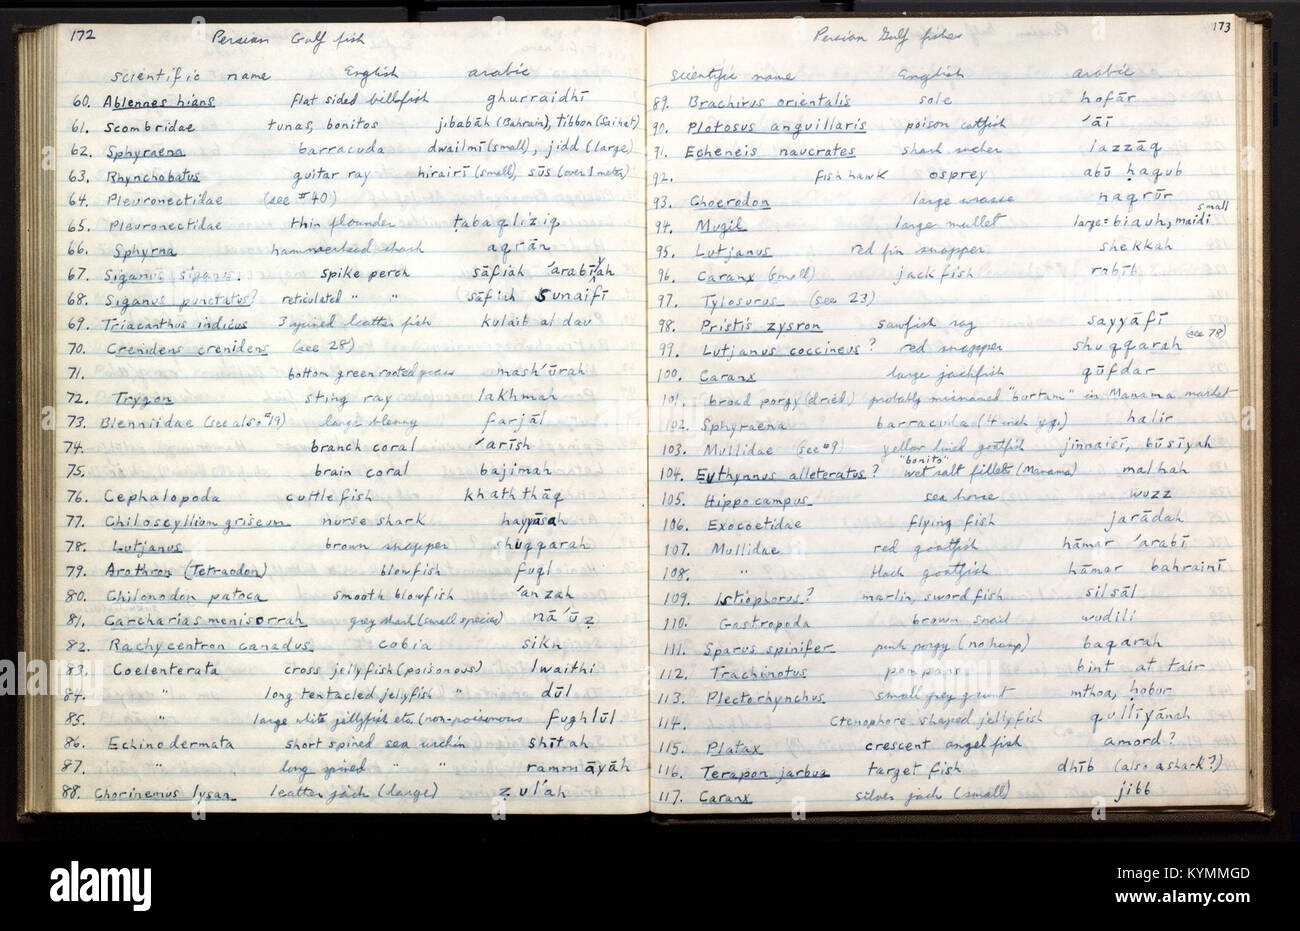 172 Persian Gulf fish
scientific name English arabic
60. Ablennes hians flat sided billfish ghurraidhī
61. Scombridae tunas, bonitos jibabāh (Bahrain), tibbon (Saihet)
62. Sphyraena barracuda dwailmī (small), jidd (large)
63. Rhynchobatus guitar ray hirairī (small), sūs (over 1 meter)
64. Pleuronectidae (see #40)
65. Pleuronectidae thin flounder tabaqliziq
66. Sphyrna hammerhead shark aqrān
67. Siganus siganus spike perch sāfiah 'arabīyah
68. Siganus punctatus? reticulated " " sāfiah sunaifī
69. Triacanthus indicus 3 spined leather fish kulaib al dau
70. Crenidens crenidens (see 28)
71. bottom green rooted grass mash'ūrah
72. Trygon sting ray lakhmah
73. Blenniidae (see also #19) large blenny farjāl
74. branch coral 'arīsh
75. brain coral bajimah
76. Cephalopoda cuttlefish khaththāq
77. Chiloscyllium griseum nurse shark hayyāsah
78. Lutjanus brown snapper shuqqarah
79. Arothron (Tetraodon) blowfish fugl
80. Chilonodon patoca smooth blowfish 'anzah
81. Carcharias menisorrah grey shark (small species) nā'ūẓ
82. Rachycentron canadus cobia sikn
83. Coelenterata cross jellyfish (poisonous) lwaithi
84. " long tentacled jellyfish " dūl
85. " large white jellyfish etc (non-poisonous fughlūl
86. Echinodermata short spined sea urchin shītah
87. " long spined " " rammāyāh
88. Chorinemus lysan leather jack (large) ẓul'ah
173
Persian Gulf fishes
scientific name English arabic
89. Brachirus orientalis sole hofār
90. Plotosus anguillaris poison catfish 'āī
91. Echeneis naucrates shark sucker lazzāq
92. fish hawk osprey abū ḥaqub
93. Choerodon large wrasse haqrūr
94. Mugil large mullet large = biauh, maidi small
95. Lutjanus red fin snapper shekkah
96. Caranx (small) jack fish rabīb
97. Tylosurus (see 23)
98. Pristis zysron sawfish ray sayyāfī
99. Lutjanus coccineus? red snapper shuqqarah (see 78)
100. Caranx large jackfish qūfdar
101. (broad porgy (dried) probably misnamed "burtam" in Manama market
102. Sphyraena barracuda (4 inch yg.) halir
103. Mullidae (see #9) yellow lined goatfish jinnaisī, būsīyah
104. Euthynnus alleteratus? "bonito" wet salt fillets (Manama) malhah
105. Hippocampus sea horse wuzz
106. Exocoetidae flying fish jarādah
107. Mullidae red goatfish hāmar 'arabī
108. " black goatfish hāmar bahrainī
109. Istiophorus? marlin, sword fish silsāl
110. Gastropoda brown snail wudili
111. Sparus spinifer pink porgy (no hump) baqarah
112. Trachinotus pompano bint at tair
113. Plectorhynchus small grey grunt mthoa, ḥobur
114. Ctenophore shaped jellyfish qullīyānah
115. Platax crescent angel fish amord?
116. Terapon jarbua target fish dhīb (also a shark?)
117. Caranx silver jack (small) jibb
alamy
Image ID: KYMMGD
www.alamy.com